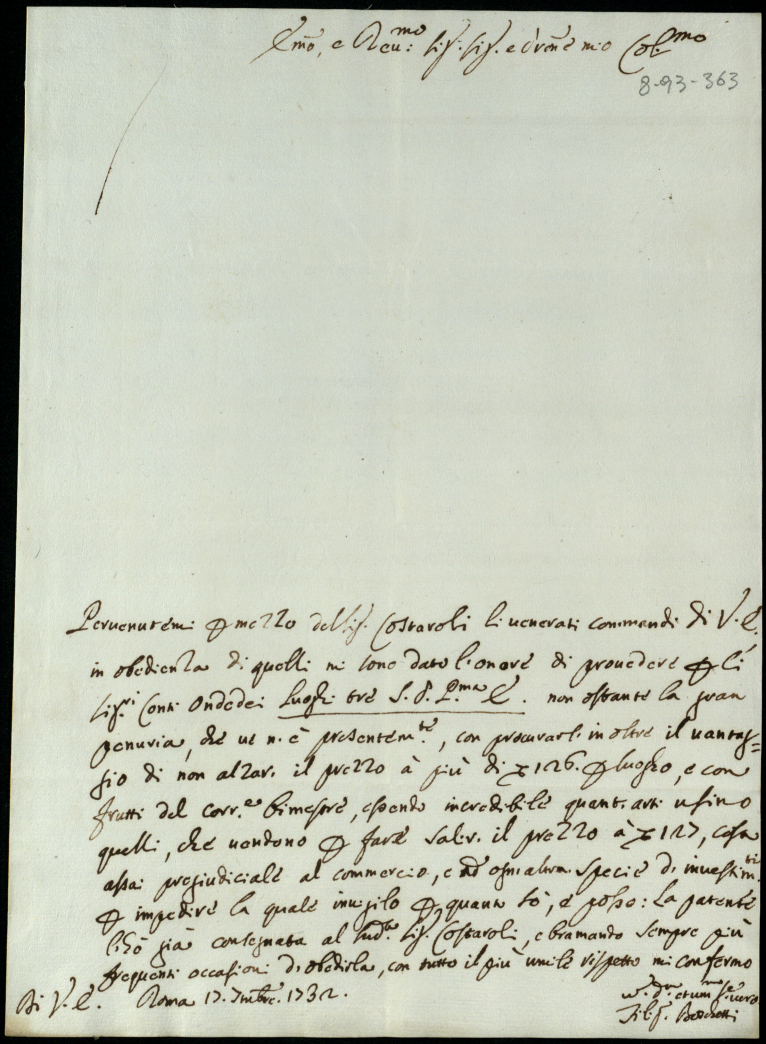 Emo, e Reu:mo Sig. Sig. e Prone mio Col:mo
8-93-363
Peruenutemi p mezzo del Sig. Costaroli li uenerati commandi di V. E.
in obedienza di quelli mi sono dato l'onore di prouedere p li
Sig.ri Conti Ondedei Luoghi tre S. P. P.ma E. non ostante la gran
penuria, che ue n'è presentem.te, con procurarli inoltre il uantag=
gio di non alzar. il prezzo à più di 126. p luogho, e con
frutti del corr.e bimestre, essendo incredibile quant. arti usino
quelli, che uendono p fare salir. il prezzo à 127, cosa
assai pregiudiciale al commercio, e ad ogni altra specie di inuestim.ti
p impedire la quale inuigilo p quanto sò, e posso: La patente
l'hò già consegnata al sud.to Sig. Costaroli, e bramando sempre più
frequenti occasioni d'obedirla, con tutto il più umile rispetto mi confermo
Di V. E. Roma 17. 7mbre. 1732.